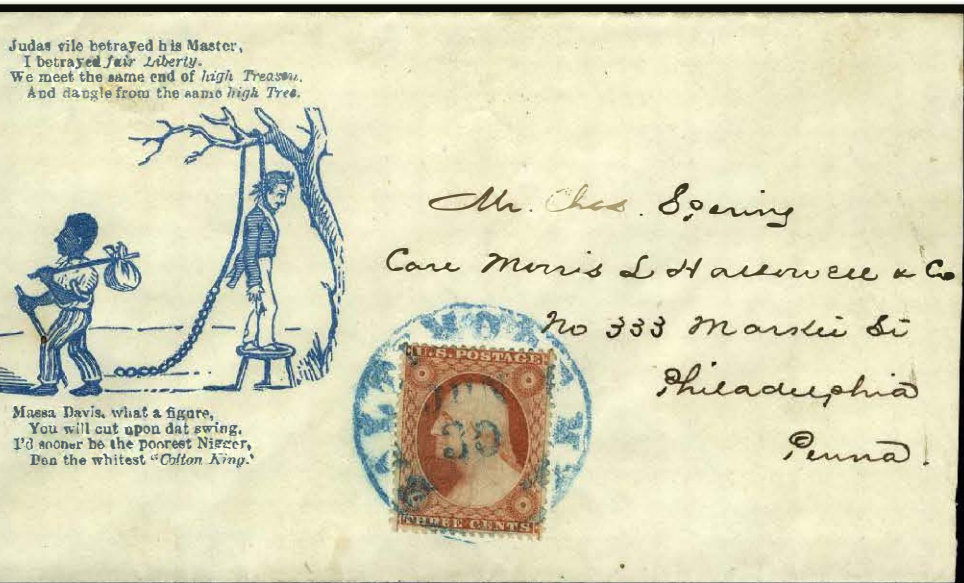 Judas vile betrayed his Master,
I betrayed fair Liberty.
We meet the same end of high Treason,
And dangle from the same high Tree.
Massa Davis, what a figure,
You will cut upon dat swing,
I'd sooner be the poorest Nigger,
Dan the whitest "Cotton King."
Mr. Chas. Spering
Care Morris L Hallowell & Co
No 333 Market St
Philadelphia
Penna.
U.S. POSTAGE
30
THREE CENTS